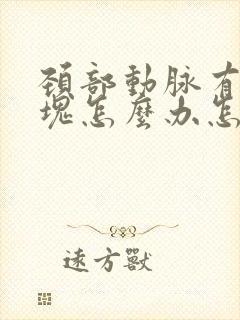 頸部動脉有
塊怎麽办怎
遠方獸